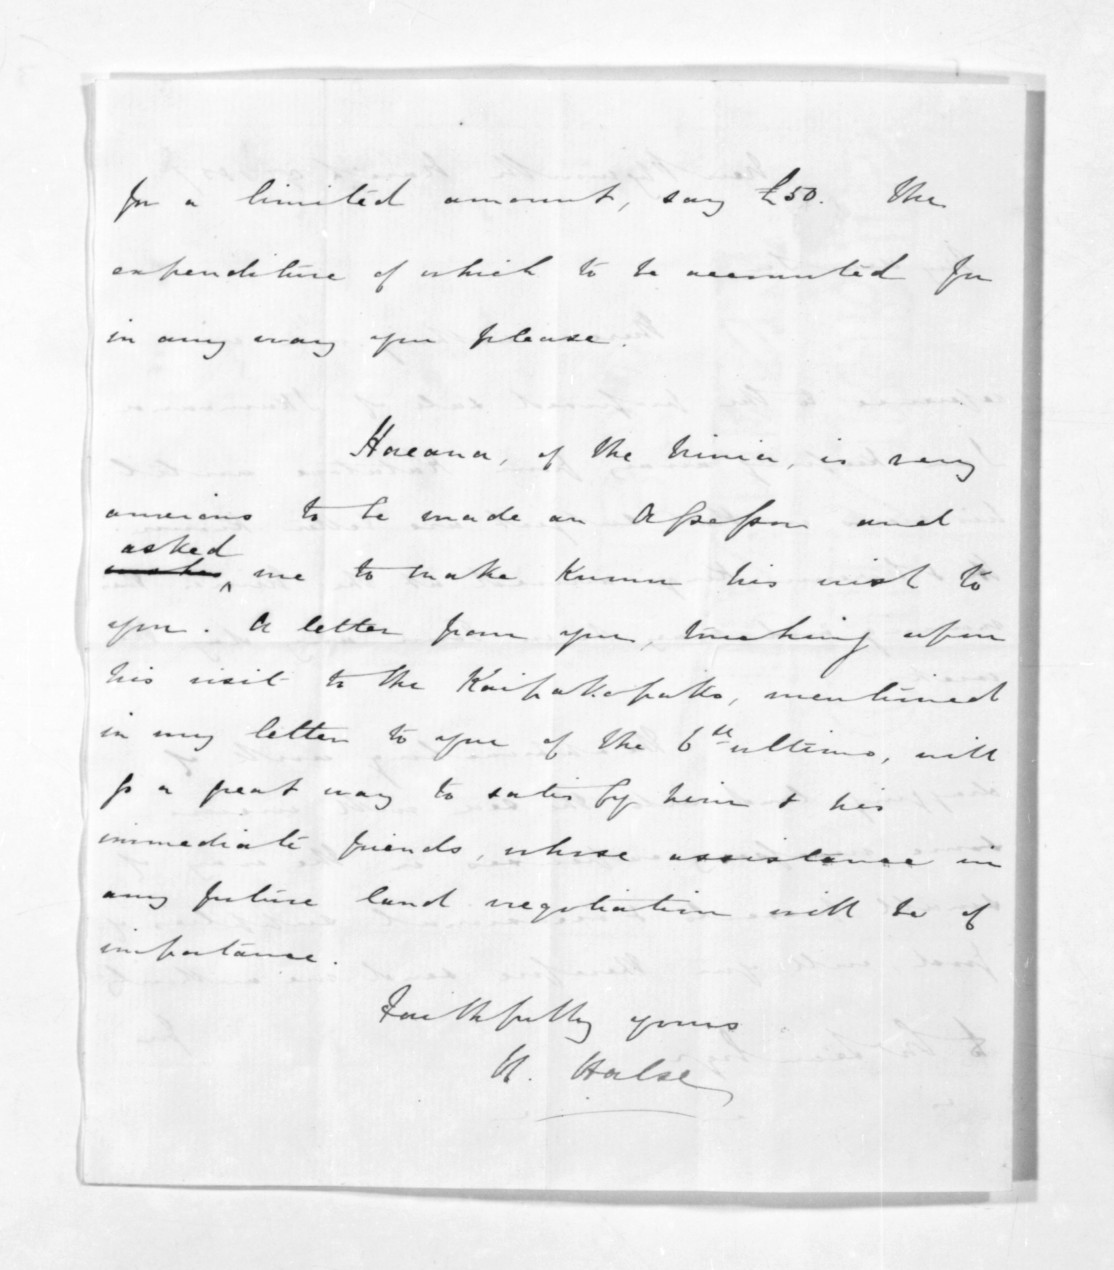 for a limited amount, say £50. The
expenditure of which to be accounted for
in any way you please.
Hoeana, of the Ninia, is very
anxious to be made an Assessor and
asked me to make known his wish to
you. A letter from you, touching upon
his visit to the Kaipakopako, mentioned
in my letter to you of the 6th ultimo, will
go a great way to satisfy him & his
immediate friends, whose assistance in
any future land negotiation will be of
importance.
Faithfully yours
H. Halse